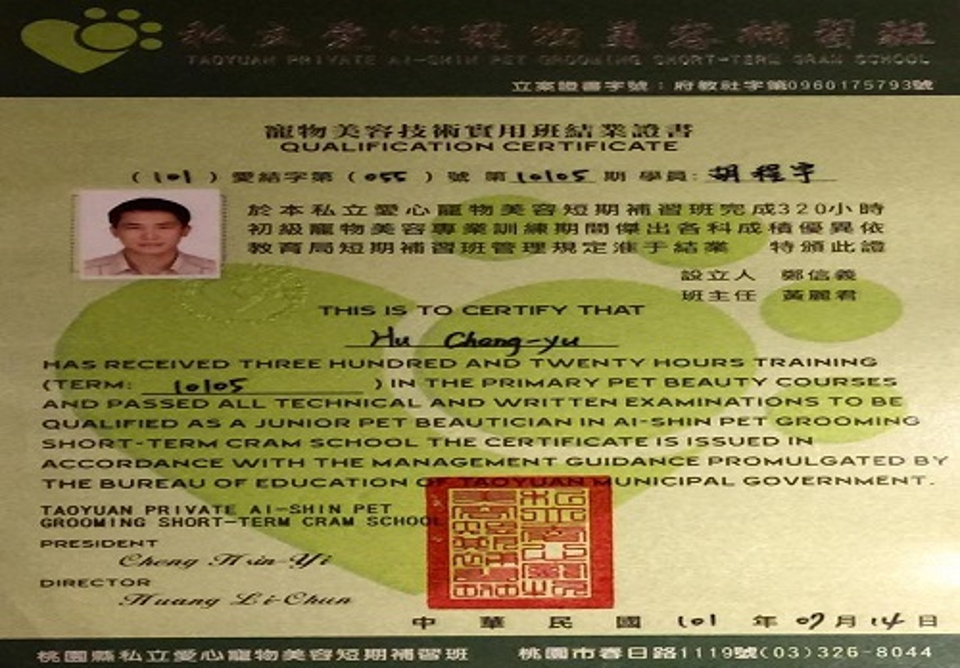 私立愛心寵物美容補習班
TAOYUAN PRIVATE AI-SHIN PET GROOMING SHORT-TERM CRAM SCHOOL
立案證書字號：府教社字第0960175793號
寵物美容技術實用班結業證書
QUALIFICATION CERTIFICATE
(101)愛結字第(055)號 第10105期 學員:胡程宇
於本私立愛心寵物美容短期補習班完成320小時
初級寵物美容專業訓練期間傑出各科成積優異依
教育局短期補習班管理規定准于結業 特頒此證
設立人 鄭信義
班主任 黃麗君
THIS IS TO CERTIFY THAT
Hu Cheng-yu
HAS RECEIVED THREE HUNDRED AND TWENTY HOURS TRAINING
(TERM: 10105 ) IN THE PRIMARY PET BEAUTY COURSES
AND PASSED ALL TECHNICAL AND WRITTEN EXAMINATIONS TO BE
QUALIFIED AS A JUNIOR PET BEAUTICIAN IN AI-SHIN PET GROOMING
SHORT-TERM CRAM SCHOOL THE CERTIFICATE IS ISSUED IN
ACCORDANCE WITH THE MANAGEMENT GUIDANCE PROMULGATED BY
THE BUREAU OF EDUCATION OF TAOYUAN MUNICIPAL GOVERNMENT.
TAOYUAN PRIVATE AI-SHIN PET
GROOMING SHORT-TERM CRAM SCHOOL
PRESIDENT
Cheng Hsin-Yi
DIRECTOR
Huang Li-Chun
中華民國 101 年 07 月 14 日
桃園縣私立愛心寵物美容短期補習班 桃園市春日路1119號(03)326-8044